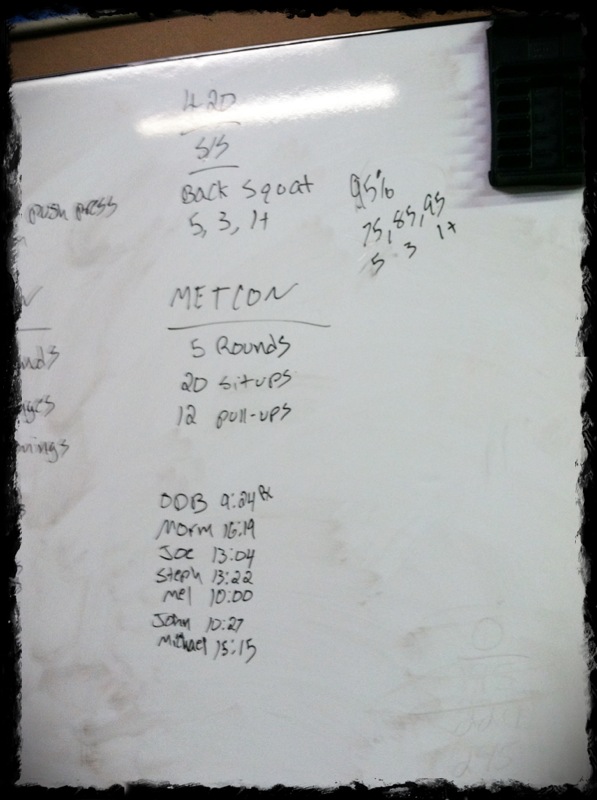 4 20
S/S
Back Squat
5, 3, 1+
95%
75, 85, 95
5 3 1+
push press
METCON
5 Rounds
20 situps
12 pull-ups
ODB 9:24 Rx
Norm 16:19
Joe 13:04
Steph 13:22
Mel 10:00
John 10:27
Michael 15:15